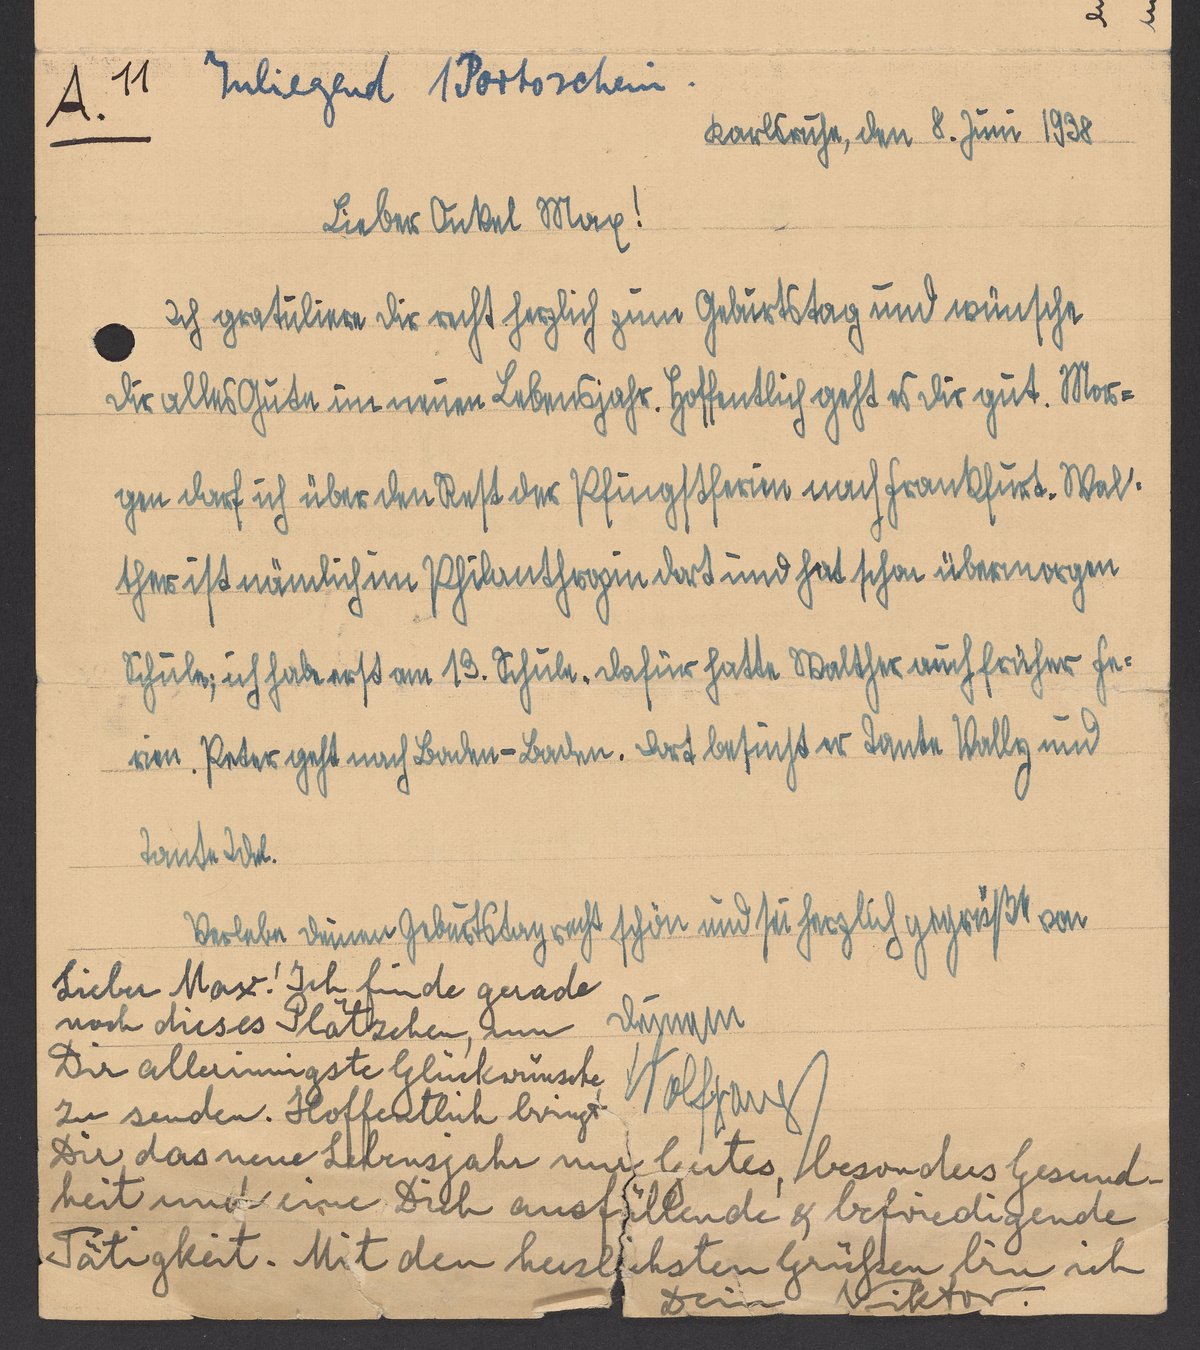 A. 11 Inliegend 1 Portoschein.
Karlsruhe, den 8. Juni 1938
Lieber Onkel Max!
Ich gratuliere dir recht herzlich zum Geburtstag und wünsche
dir alles Gute im neuen Lebensjahr. Hoffentlich geht es dir gut. Mor=
gen darf ich über den Rest der Pfingstferien nach Frankfurt. Wal-
ther ist nämlich im Philanthropin dort und hat schon übermorgen
Schule; ich habe erst am 13. Schule. Dafür hatte Walther auch früher Fe=
rien. Peter geht nach Baden-Baden. Dort besucht er Tante Wally und
Tante Idel.
Verlebe deinen Geburtstag recht schön und sei herzlich gegrüßt von
deinem
Wolfgang
Lieber Max! Ich finde gerade
noch dieses Plätzchen, um
Dir allerinnigste Glückwünsche
zu senden. Hoffentlich bringt
Dir das neue Lebensjahr nur Gutes, besonders Gesund-
heit und eine Dich ausfüllende & befriedigende
Tätigkeit. Mit den herzlichsten Grüßen bin ich
Dein Viktor.